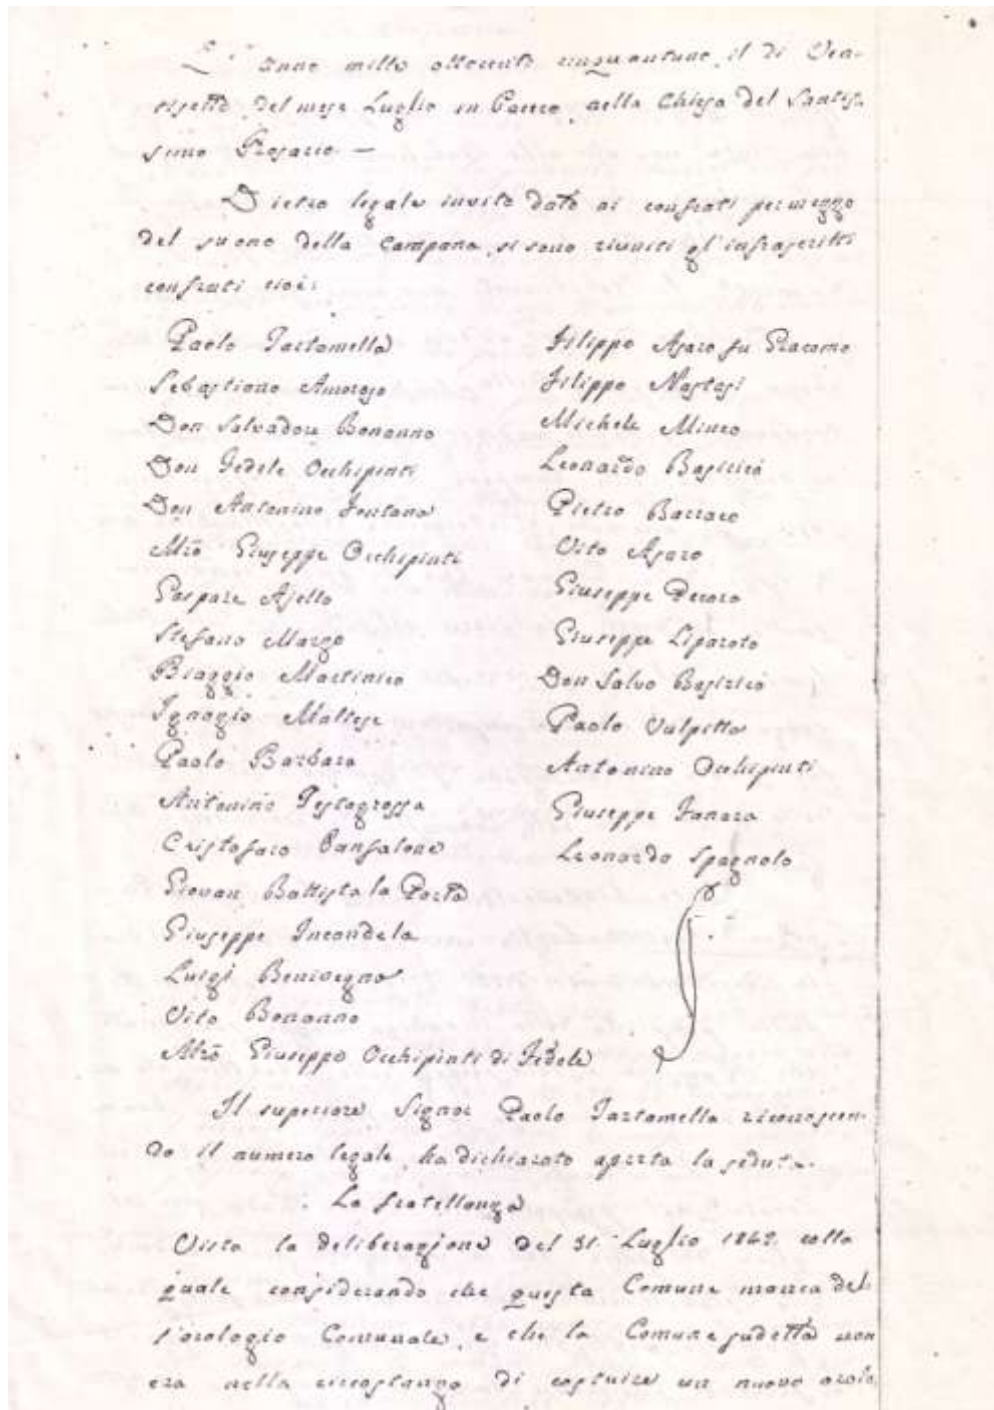 L'anno mille ottocento cinquantuno, il di Ven-
tisette del mese Luglio in Paceco, nella Chiesa del Santis-
simo Rosario —
Dietro legale invito dato ai confrati per mezzo
del suono della Campana, si sono riuniti gl'infrascritti
confrati cioè:
Paolo Tartamella
Sebastiano Amoroso
Don Salvadore Bonanno
Don Fedele Occhipinti
Don Antonino Fontana
Mro Giuseppe Occhipinti
Gaspare Ajello
Stefano Marzo
Biaggio Martinico
Ignazio Maltese
Paolo Barbara
Antonino Testagrossa
Cristofaro Pansalone
Giovan Battista la Porta
Giuseppe Incandela
Luigi Benivegna
Vito Bonanno
Mro Giuseppe Occhipinti di Fedele
Filippo Asaro fu Giacomo
Filippo Nastasi
Michele Mineo
Leonardo Basiricò
Pietro Barraco
Vito Asaro
Giuseppe Pecoro
Giuseppe Liparoto
Don Salvo Basiricò
Paolo Vulpitta
Antonino Occhipinti
Giuseppe Fanara
Leonardo Spagnolo
Il superiore Signor Paolo Tartamella riconoscen-
do il numero legale, ha dichiarato aperta la seduta.
La fratellanza
Vista la deliberazione del 31 Luglio 1842 colla
quale considerando che questa Comune manca del-
l'orologio Comunale, e che la Comune sudetta non
era nella circostanza di costruire un nuovo orolo